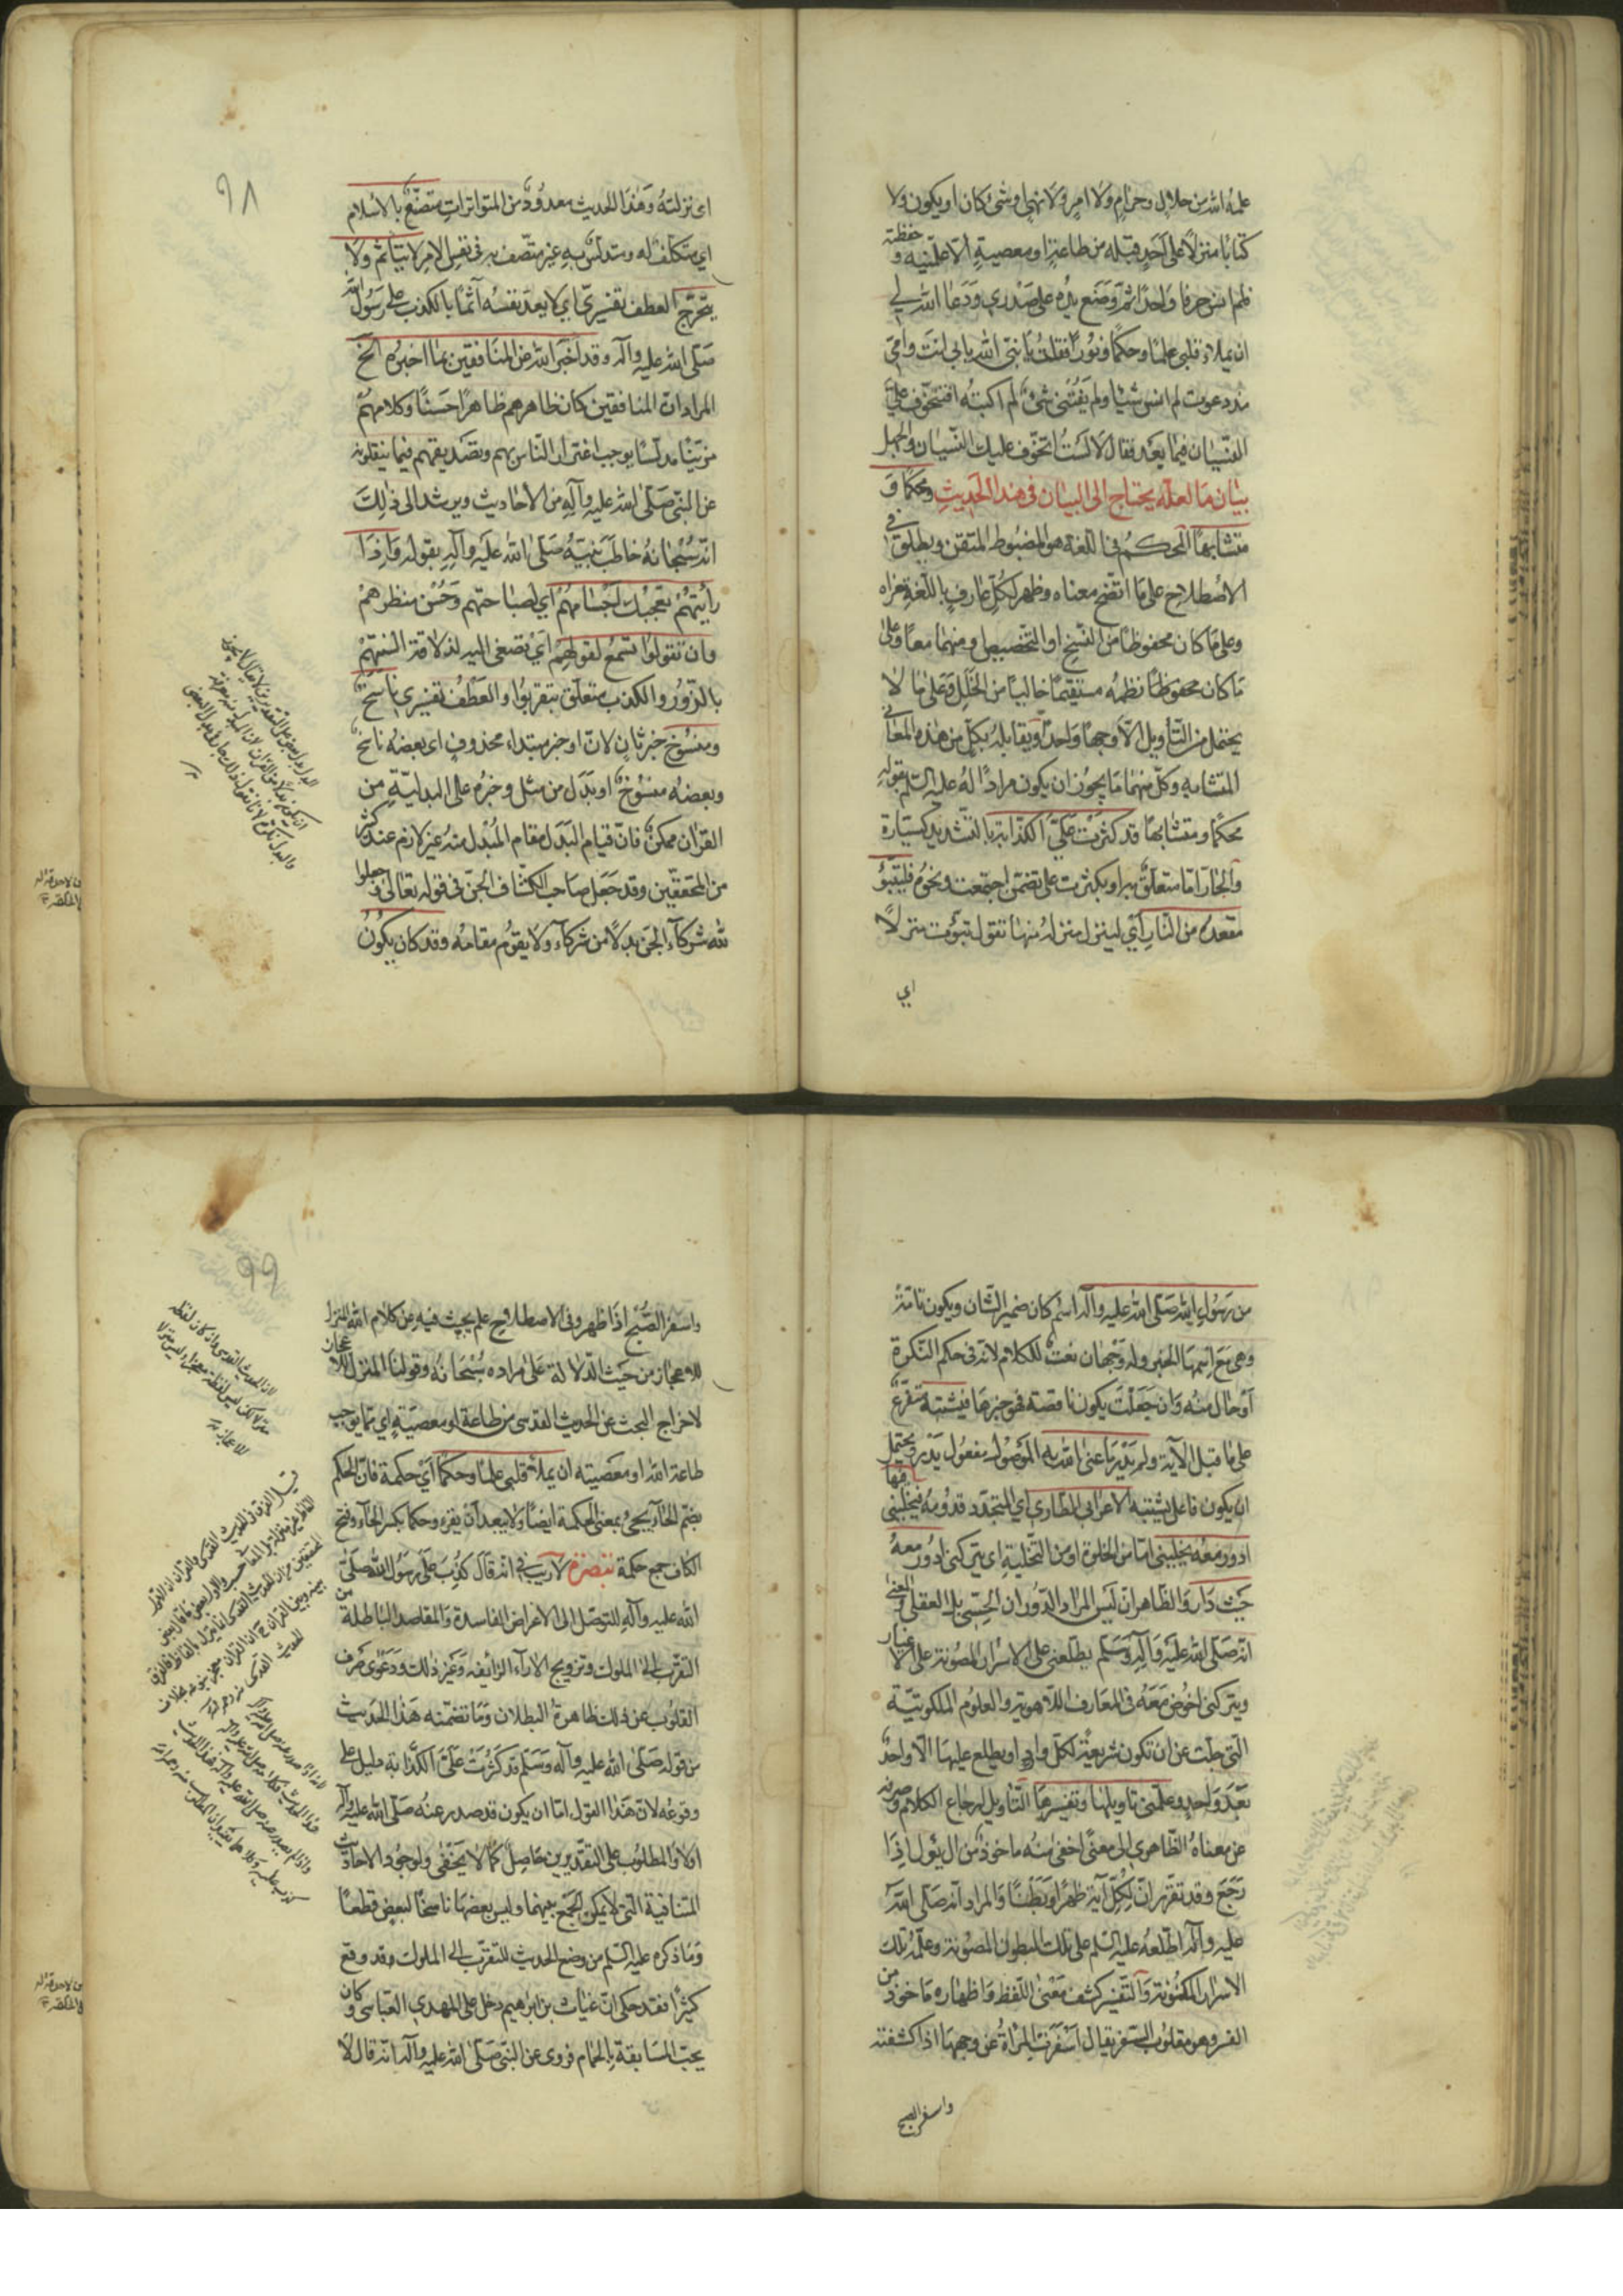 علمه الله من حلال وحرام ولا امر ولا نهي او شئ كان او يكون ولا
كتابا منزلا على احد قبله من طاعة او معصية الا علمنيه و حفظته
فلم انس حرفا واحدا ثم وضع يده على صدري ودعا الله لي
ان يملاء قلبي علما وحكما ونورا فقلت يا نبي الله بابي انت وامي
منذ دعوت لم انس شيئا ولم يفتني شئ لم اكتبه افتتخوف علي
النسيان فيما بعد فقال لا لست اتخوف عليك النسيان والجهل
بيان ما لعله يحتاج الى البيان في هذا الحديث ومحكما و
متشابها المحكم في اللغة هو المضبوط المتقن ويطلق في
الاصطلاح على ما اتضح معناه وظهر لكل عارف باللغة مغزاه
وعلى ما كان محفوظا من النسخ او التخصيص او منهما معا وعلى
ما كان محفوظا نظمه مستقيما خاليا من الخلل وعلى ما لا
يحتمل من التأويل الا وجها واحدا ويقابله بكل من هذه المعاني
المتشابه وكل منهما مما يجوز ان يكون مرادا له عليه السلم بقوله
محكما ومتشابها قد كثرت علي الكذابة بالتشديد كسيارة
والجار اما متعلق به او بكثرت على تضمن اجتمعت ونحوه فليتبؤ
مقعده من النار اي لينزل منزله منها تقول تبوئت منزلا
اي
٩٨
اي نزلته وهذا الحديث معدود من المتواترات متصنع بالاسلام
اي متكلف له ومتدلس به غير متصف به في نفس الامر لا يتأثم ولا
يتحرج العطف تفسيري اي لا يعد نفسه آثما بالكذب على رسول الله
صلى الله عليه وآله وقد اخبر الله عن المنافقين بما اخبره الخ
المراد ان المنافقين كان ظاهرهم ظاهرا حسنا وكلامهم
مزينا مدلسا يوجب اغترار الناس بهم وتصديقهم فيما ينقلونه
عن النبي صلى الله عليه وآله من الاحاديث ويرشد الى ذلك
انه سبحانه خاطب نبيه صلى الله عليه وآله بقوله واذا
رأيتهم تعجبك اجسامهم اي لصباحتهم وحسن منظرهم
وان تقولوا تسمع لقولهم اي تصغي اليه لذلاقة السنتهم
بالزور والكذب متعلق بتقربوا والعطف تفسيري ناسخ
ومنسوخ خبر ثان لان او خبر مبتداء محذوف اي بعضه ناسخ
وبعضه منسوخ او بدل من مثل وخبره على البدلية من
القرآن ممكن فان قيام البدل مقام المبدل منه غير لازم عند كثير
من المحققين وقد جعل صاحب الكشاف الجن في قوله تعالى وجعلوا
لله شركاء الجن بدلا من شركاء ولا يقوم مقامه وقد كان يكون
من رسول الله صلى الله عليه وآله اسم كان ضمير الشان ويكون تامة
وهي مع اسمها الخبر وله وجهان نعت للكلام لانه في حكم النكرة
او حال منه وان جعلت يكون ناقصة فهو خبرها فيشتبه متفرع
على ما قبل الآية ولم يدر ما عنى الله به الموصول مفعول يدر ويحتمل
ان يكون فاعل يشتبه الاعرابي الطاري اي المتجدد قدومه فيخليني فيها
ادور معه يخليني اما من الخلوة او من التخلية اي يتركني ادور معه
حيث دار والظاهر ان ليس المراد الدوران الحسي بل العقلي المعنى
انه صلى الله عليه وآله وسلم يطلعني على الاسرار المصونة على الاغيار
ويتركني اخوض معه في المعارف اللاهوتية والعلوم الملكوتية
التي جلت عن ان تكون شريعة لكل وارد او يطلع عليها الا واحد
بعد واحد وعلمني تاويلها وتفسيرها التأويل ارجاع الكلام وصرفه
عن معناه الظاهري الى معنى اخفى منه ماخوذ من ال يئول اذا
رجع وقد تقرر ان لكل آية ظهرا وبطنا والمراد انه صلى الله
عليه وآله اطلعه عليه السلم على تلك البطون المصونة وعلمه تلك
الاسرار المكنونة والتفسير كشف معنى اللفظ واظهاره ماخوذ من
الفسر وهو مقلوب السفر يقال اسفرت المرأة عن وجهها اذا كشفته
واسفر الصبح
٩٩
واسفر الصبح اذا ظهر وفي الاصطلاح علم يبحث فيه عن كلام الله المنزل
للاعجاز من حيث الدلالة على مراده سبحانه وقولنا المنزل للاعجاز
لاخراج البحث عن الحديث القدسي من طاعة او معصية اي مما يوجب
طاعة الله او معصيته ان يملأ قلبي علما وحكما اي حكمة فان الحكم
بضم الحاء يجئ بمعنى الحكمة ايضا ولا يبعد ان يقرء وحكما بكسر الحاء وفتح
الكاف جمع حكمة تبصرة لا ريب في انه قال كذب على رسول الله صلى
الله عليه وآله للتوصل الى الاغراض الفاسدة والمقاصد الباطلة من
التقرب الى الملوك وترويج الاراء الزائفة وغير ذلك ودعوى صرف
القلوب عن ذلك ظاهرة البطلان وما تضمنه هذا الحديث
من قوله صلى الله عليه وآله وسلم قد كثرت علي الكذابة دليل على
وقوعه لان هذا القول اما ان يكون قد صدر عنه صلى الله عليه وآله
اولا والمطلوب على التقديرين حاصل كما لا يخفى ولوجود الاحاديث
المتنافية التي لا يمكن الجمع بينهما وليس بعضها ناسخا لبعض قطعا
وما ذكره عليه السلم من وضع الحديث للتقرب الى الملوك وقد وقع
كثيرا فقد حكي ان غياث بن ابراهيم دخل على المهدي العباسي وكان
يحب المسابقة بالحمام فروى عن النبي صلى الله عليه وآله انه قال لا